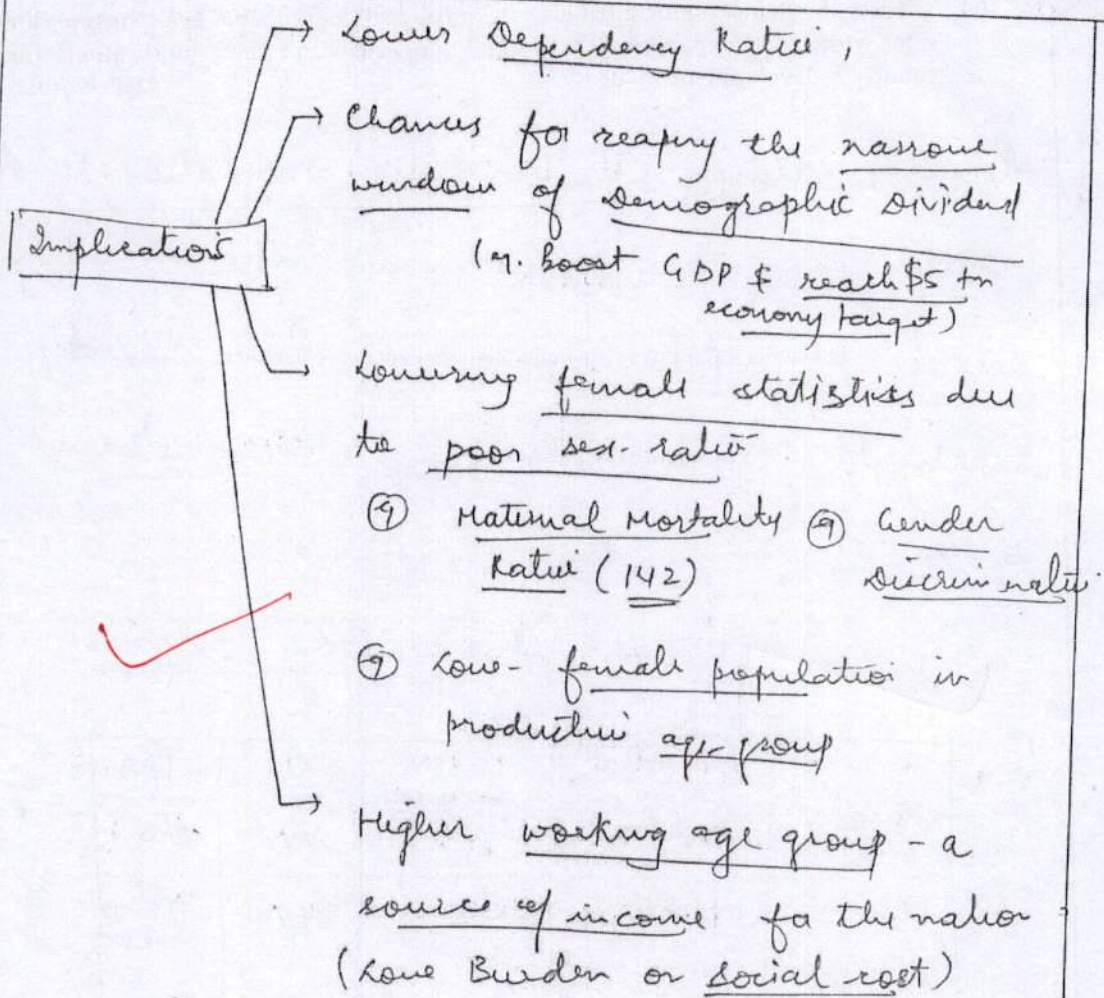 Lower Dependency Ratio,
Chances for reaping the narrow
window of Demographic Dividend
(eg. boost GDP & reach $5 tn
economy target)
Implications
Lowering female statistics due
to poor sex-ratio
eg Maternal Mortality eg Gender
Ratio (142) Discrimination
eg Low- female population in
productive age group
Higher working age group - a
source of income for the nation
(Low Burden or social cost)